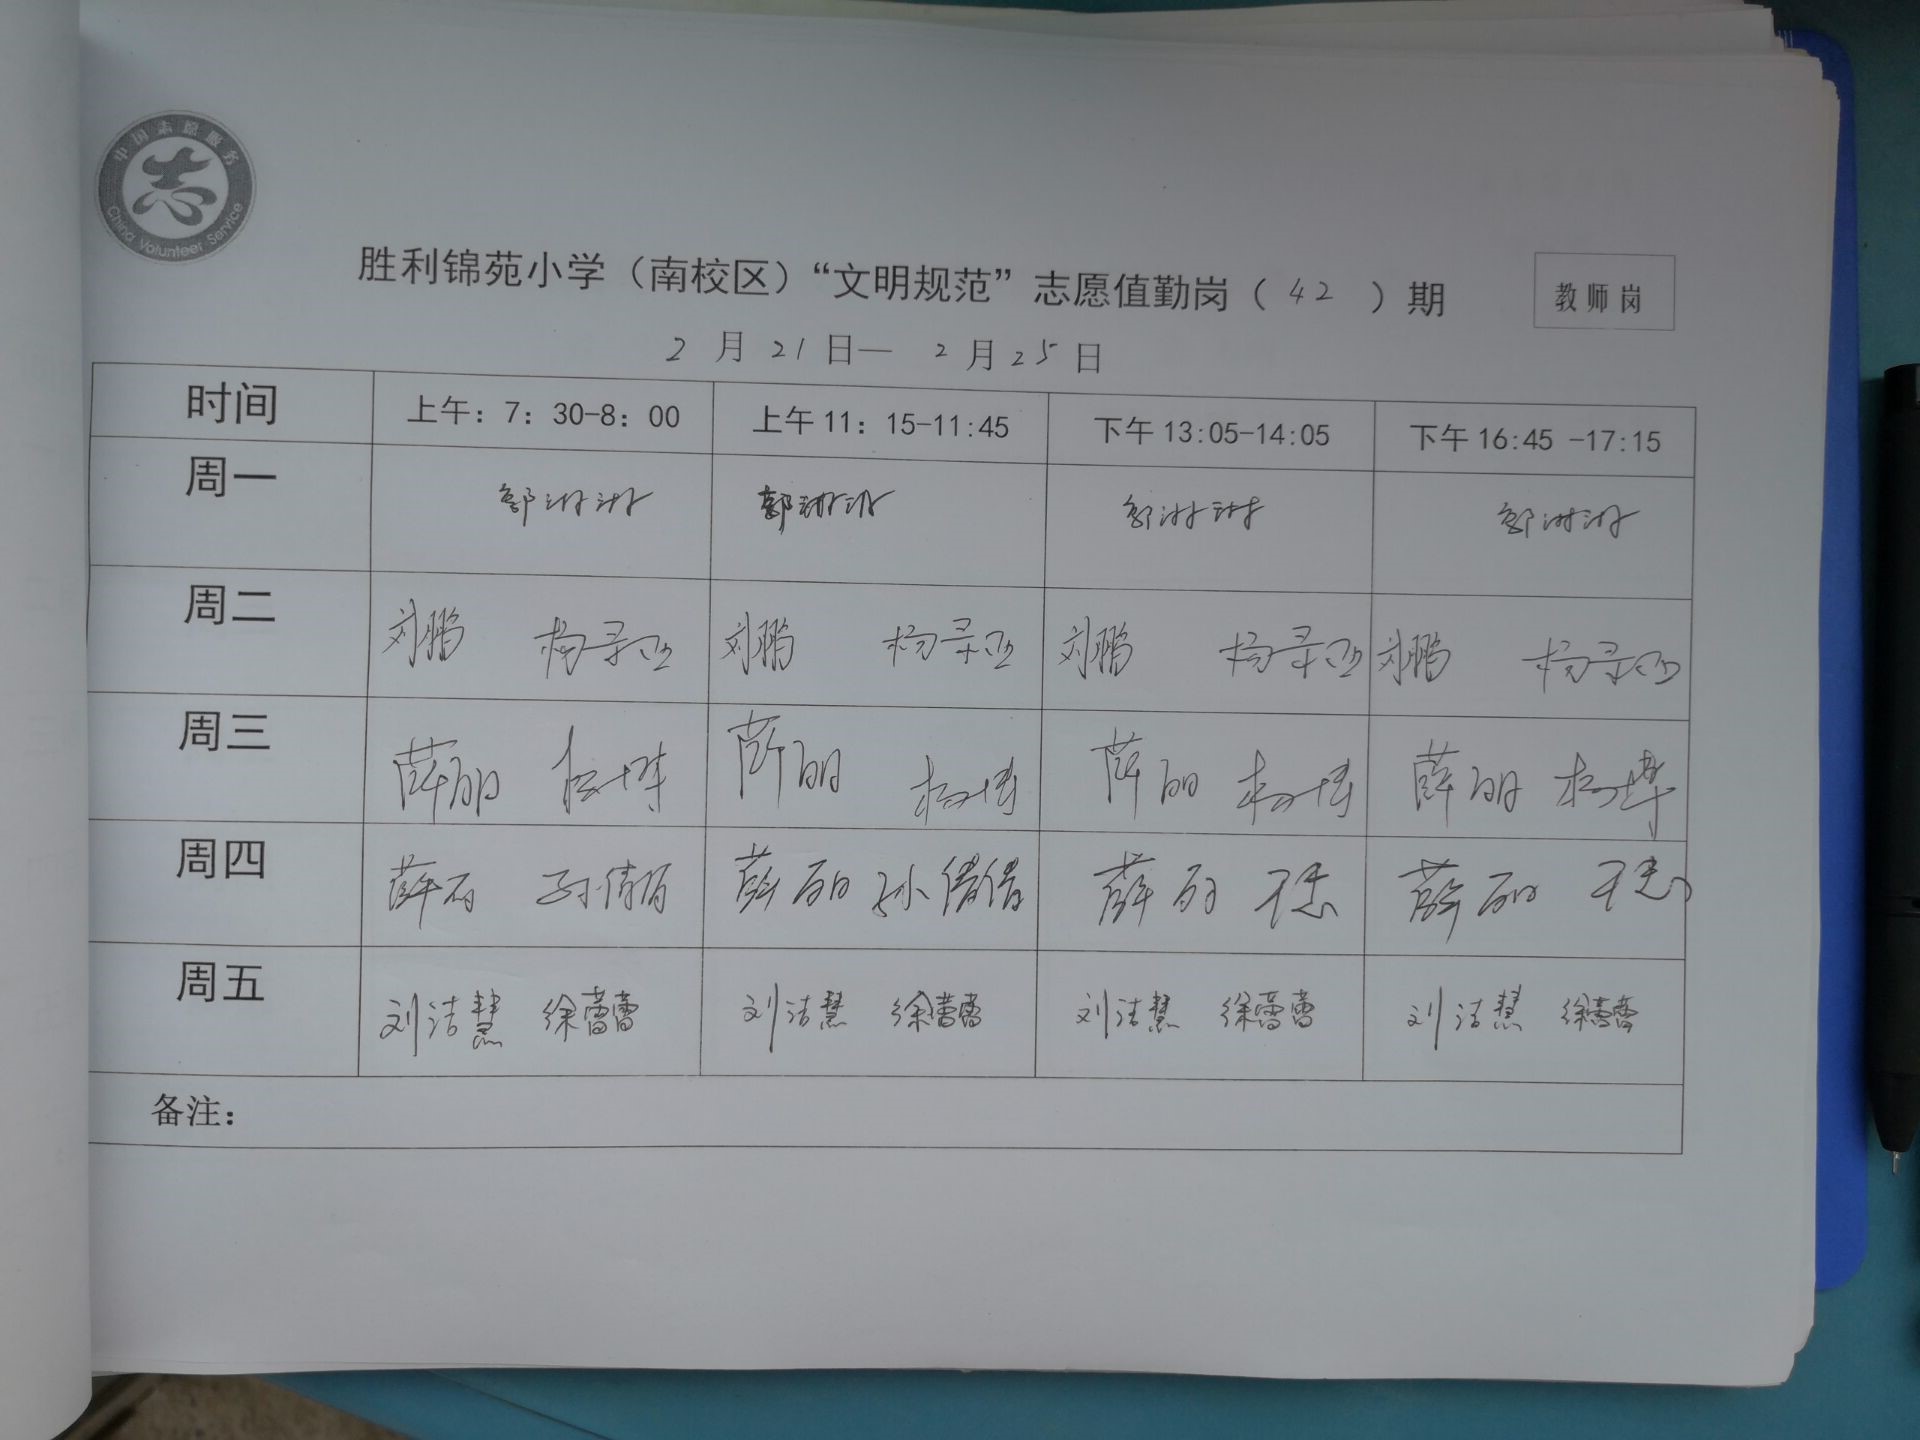 中国志愿服务
志
China Volunteer Service
胜利锦苑小学（南校区）“文明规范”志愿值勤岗（42）期
教师岗
2月21日—2月25日
时间 上午：7：30-8：00 上午11：15-11:45 下午13:05-14:05 下午16:45 -17:15
周一 郭淋淋 郭淋淋 郭淋淋 郭淋淋
周二 刘鹏 刘鹏 刘鹏 刘鹏
周三 薛丽 薛丽 杨博 薛丽 杨博 薛丽 杨博
周四 薛丽 孙倩倩 薛丽 孙倩倩 薛丽 薛丽
周五 刘洁慧 徐蕾蕾 刘洁慧 徐蕾蕾 刘洁慧 徐蕾蕾 刘洁慧 徐蕾蕾
备注：